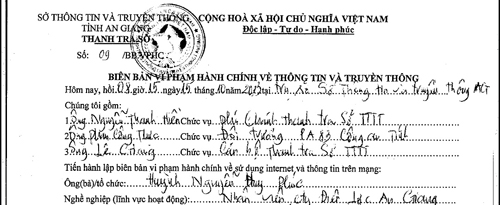 SỞ THÔNG TIN VÀ TRUYỀN THÔNG
TỈNH AN GIANG
THANH TRA SỞ
Số: 09 /BB-VPHC
CỘNG HOÀ XÃ HỘI CHỦ NGHĨA VIỆT NAM
Độc lập - Tự do - Hạnh phúc
BIÊN BẢN VI PHẠM HÀNH CHÍNH VỀ THÔNG TIN VÀ TRUYỀN THÔNG
Hôm nay, hồi 08 giờ 15 ngày 15 tại Sở Thông tin truyền thông AG
Chúng tôi gồm:
1. Ông Nguyễn Thanh Hiền Chức vụ phó Chánh thanh tra Sở TTTT
2. Ông Phạm Công Thức Chức vụ Đội trưởng PA.83 Công an Tỉnh
3. Ông Lê Giang Chức vụ Cán bộ Thanh tra Sở TTTT
Tiến hành lập biên bản vi phạm hành chính về sử dụng internet và thông tin trên mạng:
Ông(bà)/tổ chức: Huỳnh Nguyễn Huy Phúc
Nghề nghiệp (lĩnh vực hoạt động): Nhân viên cty Điện lực An Giang